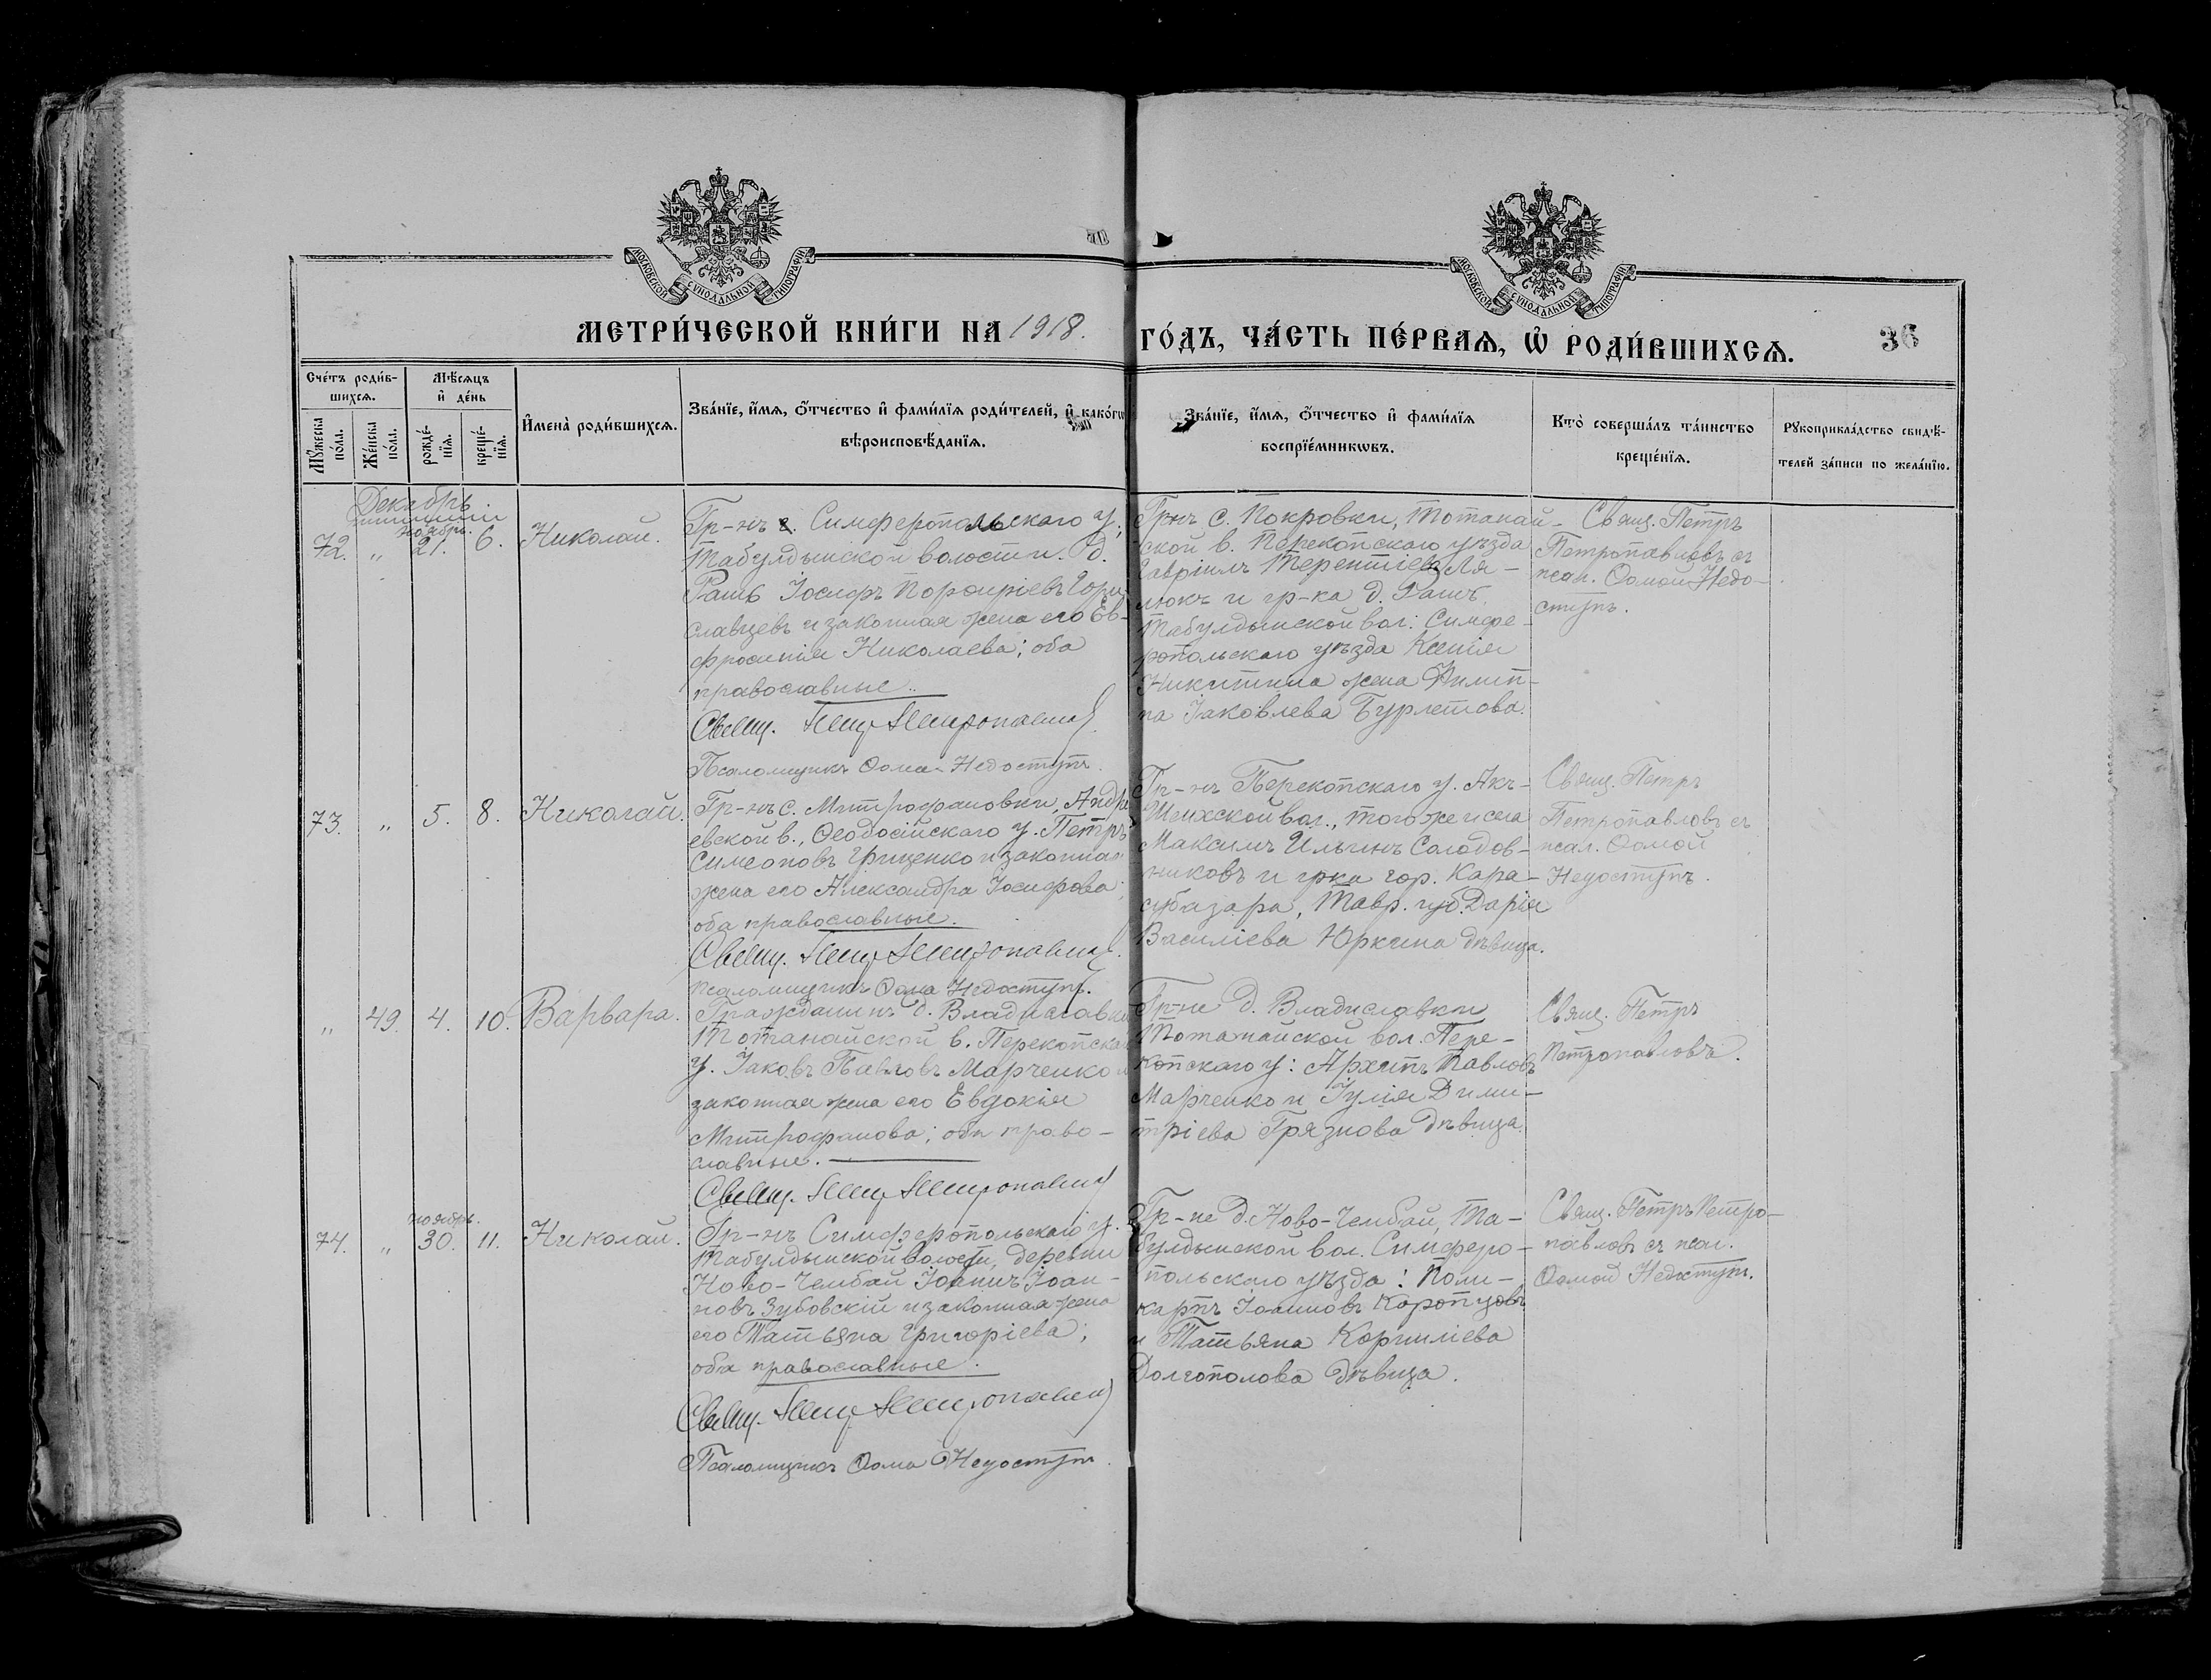 МОСКОВСКОЙ СѴНОДАЛЬНОЙ ТИПОГРАФІИ
МОСКОВСКОЙ СѴНОДАЛЬНОЙ ТИПОГРАФІИ
МЕТРИ́ЧЕСКОЙ КНИ́ГИ НА 1918.
ГО́ДЪ, ЧА́СТЬ ПЕ́РВАѦ, Ѡ҆ РОДИ́ВШИХСѦ.
36
Сче́тъ роди́в-
шихсѧ.
Мѣ́сѧцъ
и҆ де́нь
Мꙋ́жеска
по́ла.
Же́нска
по́ла.
рожде́-
нїѧ.
креще́-
нїѧ.
И҆мена̀ роди́вшихсѧ.
Зва́нїе, и҆́мѧ, ѻ҆́тчество и҆ фами́лїѧ роди́телей, и҆ како́гѡ
вѣроисповѣ́данїѧ.
Зва́нїе, и҆́мѧ, ѻ҆́тчество и҆ фами́лїѧ
воспрїе́мникѡвъ.
Кто̀ соверша́лъ та́инство
креще́нїѧ.
Рꙋкоприкла́дство свидѣ́-
телей за́писи по жела́нїю.
Декабрь
ноябрь.
72. „ 21. 6. Николай.
Гр-нъ Симферопольскаго у.,
Табулдынской волости. д.
Рашъ Іосифъ Порфиріевъ
славцевъ и законная жена его Ев-
фросинія Николаева; оба
православные.
Свящ. Петръ Петропавловъ
Псаломщикъ Ѳома Недоступъ.
Грнъ с. Покровки, Тотанай-
ской в. Перекопскаго уѣзда
Гавріилъ Терентіевъ Ля-
люкъ и гр-ка д. Рашъ
Табулдынской вол: Симфе-
ропольскаго уѣзда Ксенія
Никитина жена Филип-
па Іаковлева Бурлетова.
Свящ. Петръ
Петропавловъ съ
псал. Ѳомой Недо-
ступъ.
73. „ 5. 8. Николай.
Гр-нъ с. Митрофановки, Андре
евской в., Ѳеодосійскаго у. Петръ
Симеоновъ Гриценко и законная
жена его Александра Іосифова;
оба православные.
Свящ. Петръ Петропавловъ.
псаломщикъ Ѳома Недоступъ.
Гр-нъ Перекопскаго у. Акъ-
Шеихской вол., того же села
Максимъ Ильинъ Солодов-
никовъ и грка гор. Кара-
субазара, Тавр. губ. Дарія
Василіева Юркина дѣвица.
Свящ. Петръ
Петропавловъ съ
псал. Ѳомой
Недоступъ.
„ 49. 4. 10. Варвара.
Гражданинъ д. Владиславки
Тотанайской в. Перекопска
у. Іаковъ Павловъ Марченко и
законная жена его Евдокія
Митрофанова; оба право-
славные.
Свящ. Петръ Петропавловъ
Гр-не д. Владиславки
Тотанайской вол. Пере-
копскаго у: Архипъ Павловъ
Марченко и Іулія Дими-
тріева Грязнова дѣвица.
Свящ. Петръ
Петропавловъ.
ноябрь.
74. „ 30. 11. Николай.
Гр-нъ Симферопольскаго у.
Табулдынской волости, деревни
Ново-Чембай Іоаннъ Іоан-
новъ Зубовскій и законная жена
его Татьяна Григоріева;
оба православные.
Свящ. Петръ Петропавловъ
Псаломщикъ Ѳома Недоступъ.
Гр-не д. Ново-Чембай, Та-
булдынской вол. Симферо-
польскаго уѣзда: Поли-
карпъ Іоанновъ Коропцовъ
и Татьяна Корниліева
Долгополова дѣвица.
Свящ. Петръ Петро-
павловъ съ псал.
Ѳомой Недоступъ.